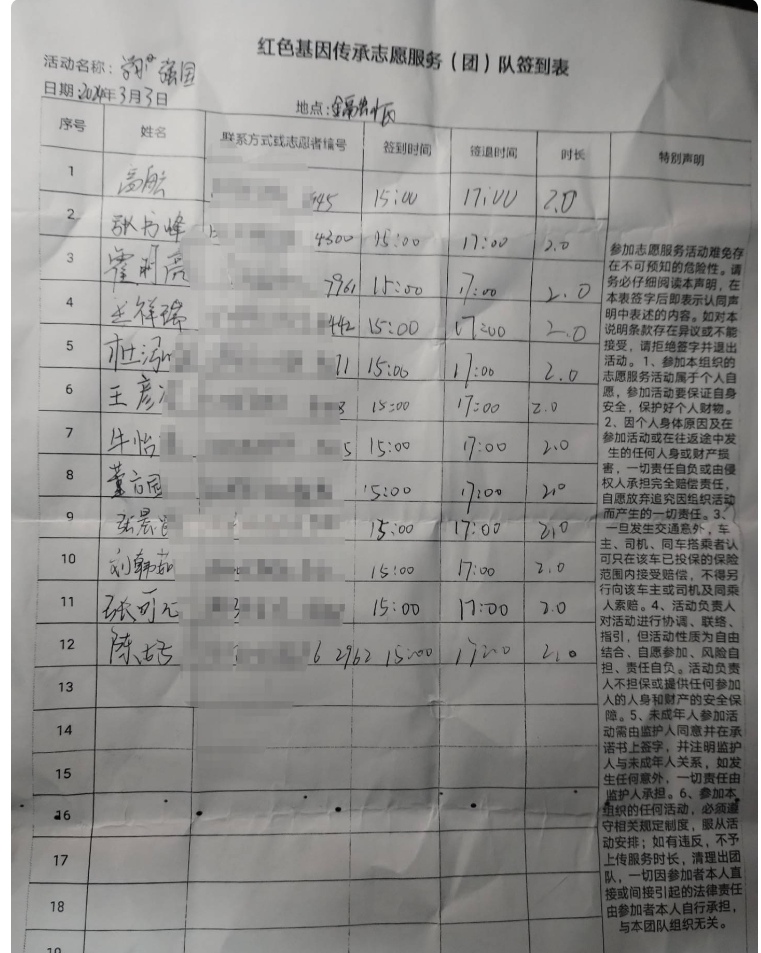 红色基因传承志愿服务（团）队签到表
活动名称： 强国
日期：2024年3月3日
地点：
序号 姓名 联系方式或志愿者编号 签到时间 签退时间 时长 特别声明
1 高 545 15:00 17:00 2.0
2 张书峰 4300 15:00 17:00 2.0
3 霍 亮 7961 15:00 17:00 2.0
4 祥瑞 442 15:00 17:00 2.0
5 杜泓 11 15:00 17:00 2.0
6 王彦 3 15:00 17:00 2.0
7 牛怡 5 15:00 17:00 2.0
8 董 15:00 17:00 2.0
9 张晨 15:00 17:00 2.0
10 刘韩茹 15:00 17:00 2.0
11 张可 15:00 17:00 2.0
12 陈 6 2962 15:00 17:00 2.0
13
14
15
16
17
18
19
参加志愿服务活动难免存
在不可预知的危险性。请
务必仔细阅读本声明，在
本表签字后即表示认同声
明中表述的内容。如对本
说明条款存在异议或不能
接受，请拒绝签字并退出
活动。1、参加本组织的
志愿服务活动属于个人自
愿，参加活动要保证自身
安全，保护好个人财物。
2、因个人身体原因及在
参加活动或在往返途中发
生的任何人身或财产损
害，一切责任自负或由侵
权人承担完全赔偿责任，
自愿放弃追究因组织活动
而产生的一切责任。3、
一旦发生交通意外，车
主、司机、同车搭乘者认
可只在该车已投保的保险
范围内接受赔偿，不得另
行向该车主或司机及同乘
人索赔。4、活动负责人
对活动进行协调、联络、
指引，但活动性质为自由
结合、自愿参加、风险自
担、责任自负。活动负责
人不担保或提供任何参加
人的人身和财产的安全保
障。5、未成年人参加活
动需由监护人同意并在承
诺书上签字，并注明监护
人与未成年人关系，如发
生任何意外，一切责任由
监护人承担。6、参加本
组织的任何活动，必须遵
守相关规定制度，服从活
动安排；如有违反，不予
上传服务时长，清理出团
队，一切因参加者本人直
接或间接引起的法律责任
由参加者本人自行承担，
与本团队组织无关。